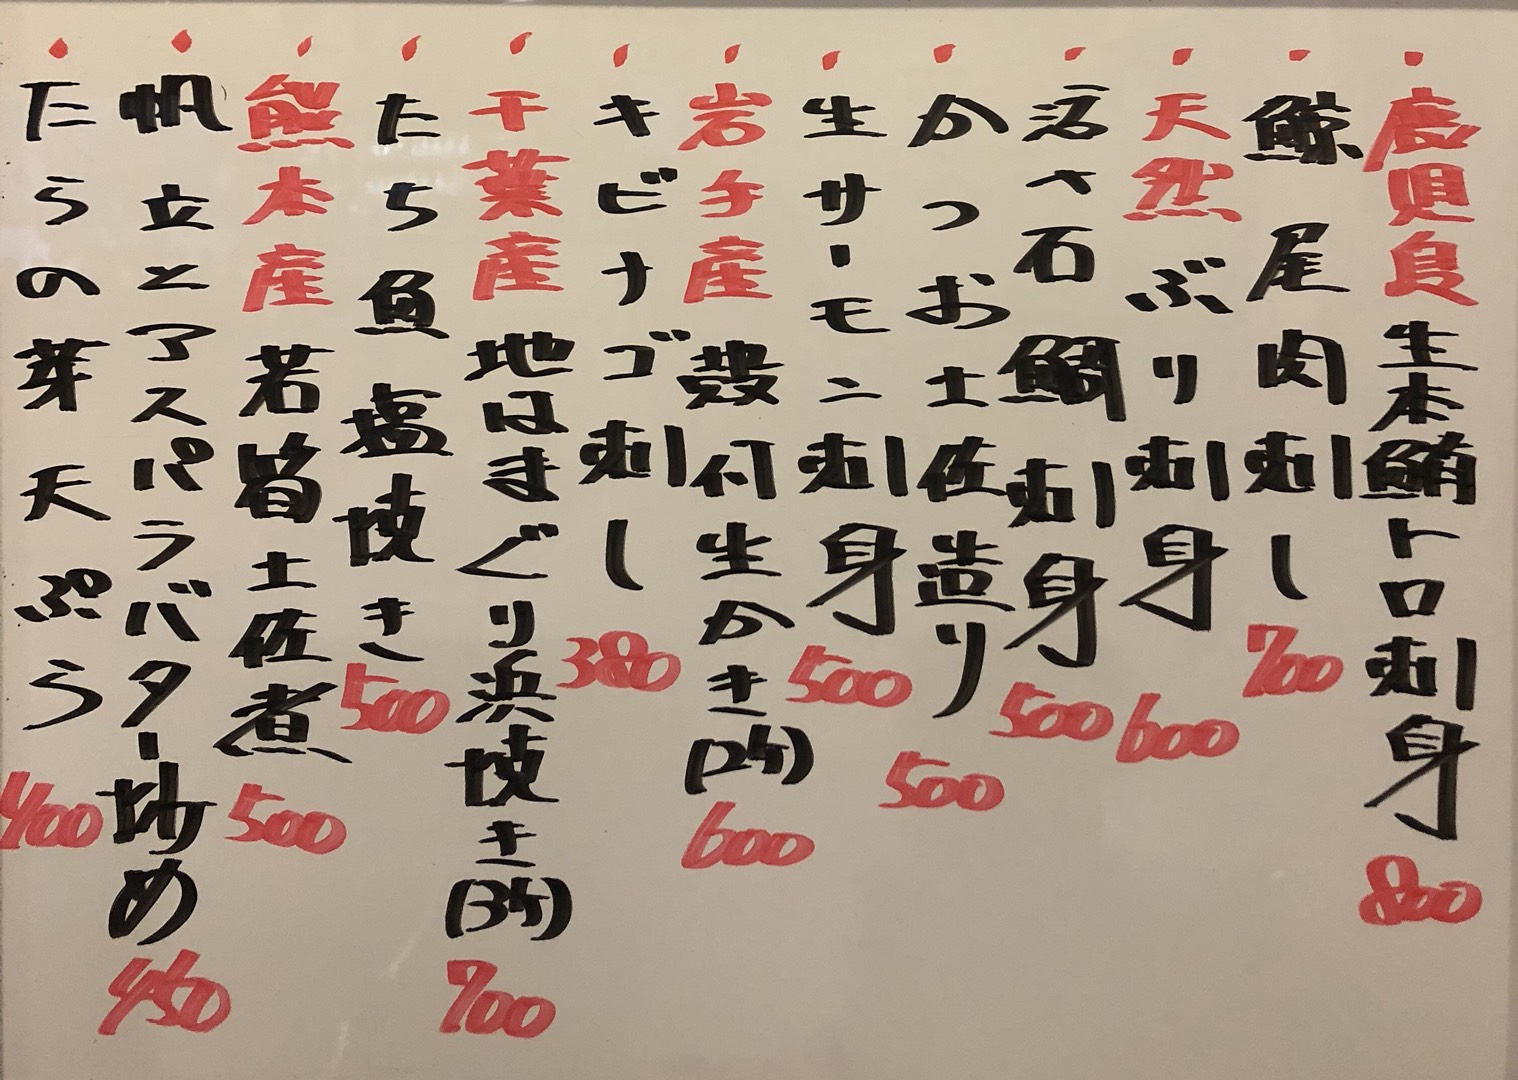 鹿児島生本鮪トロ刺身 800
鯨尾肉刺し 700
天然ぶり刺身 600
活〆石鯛刺身 500
かつお土佐造り 500
生サーモン刺身 500
岩手産殻付生かき(2ケ) 600
キビナゴ刺し 380
千葉産地はまぐり浜焼き(3ケ) 700
たち魚塩焼き 500
熊本産若筍土佐煮 500
帆立とアスパラバター炒め 450
たらの芽天ぷら 400